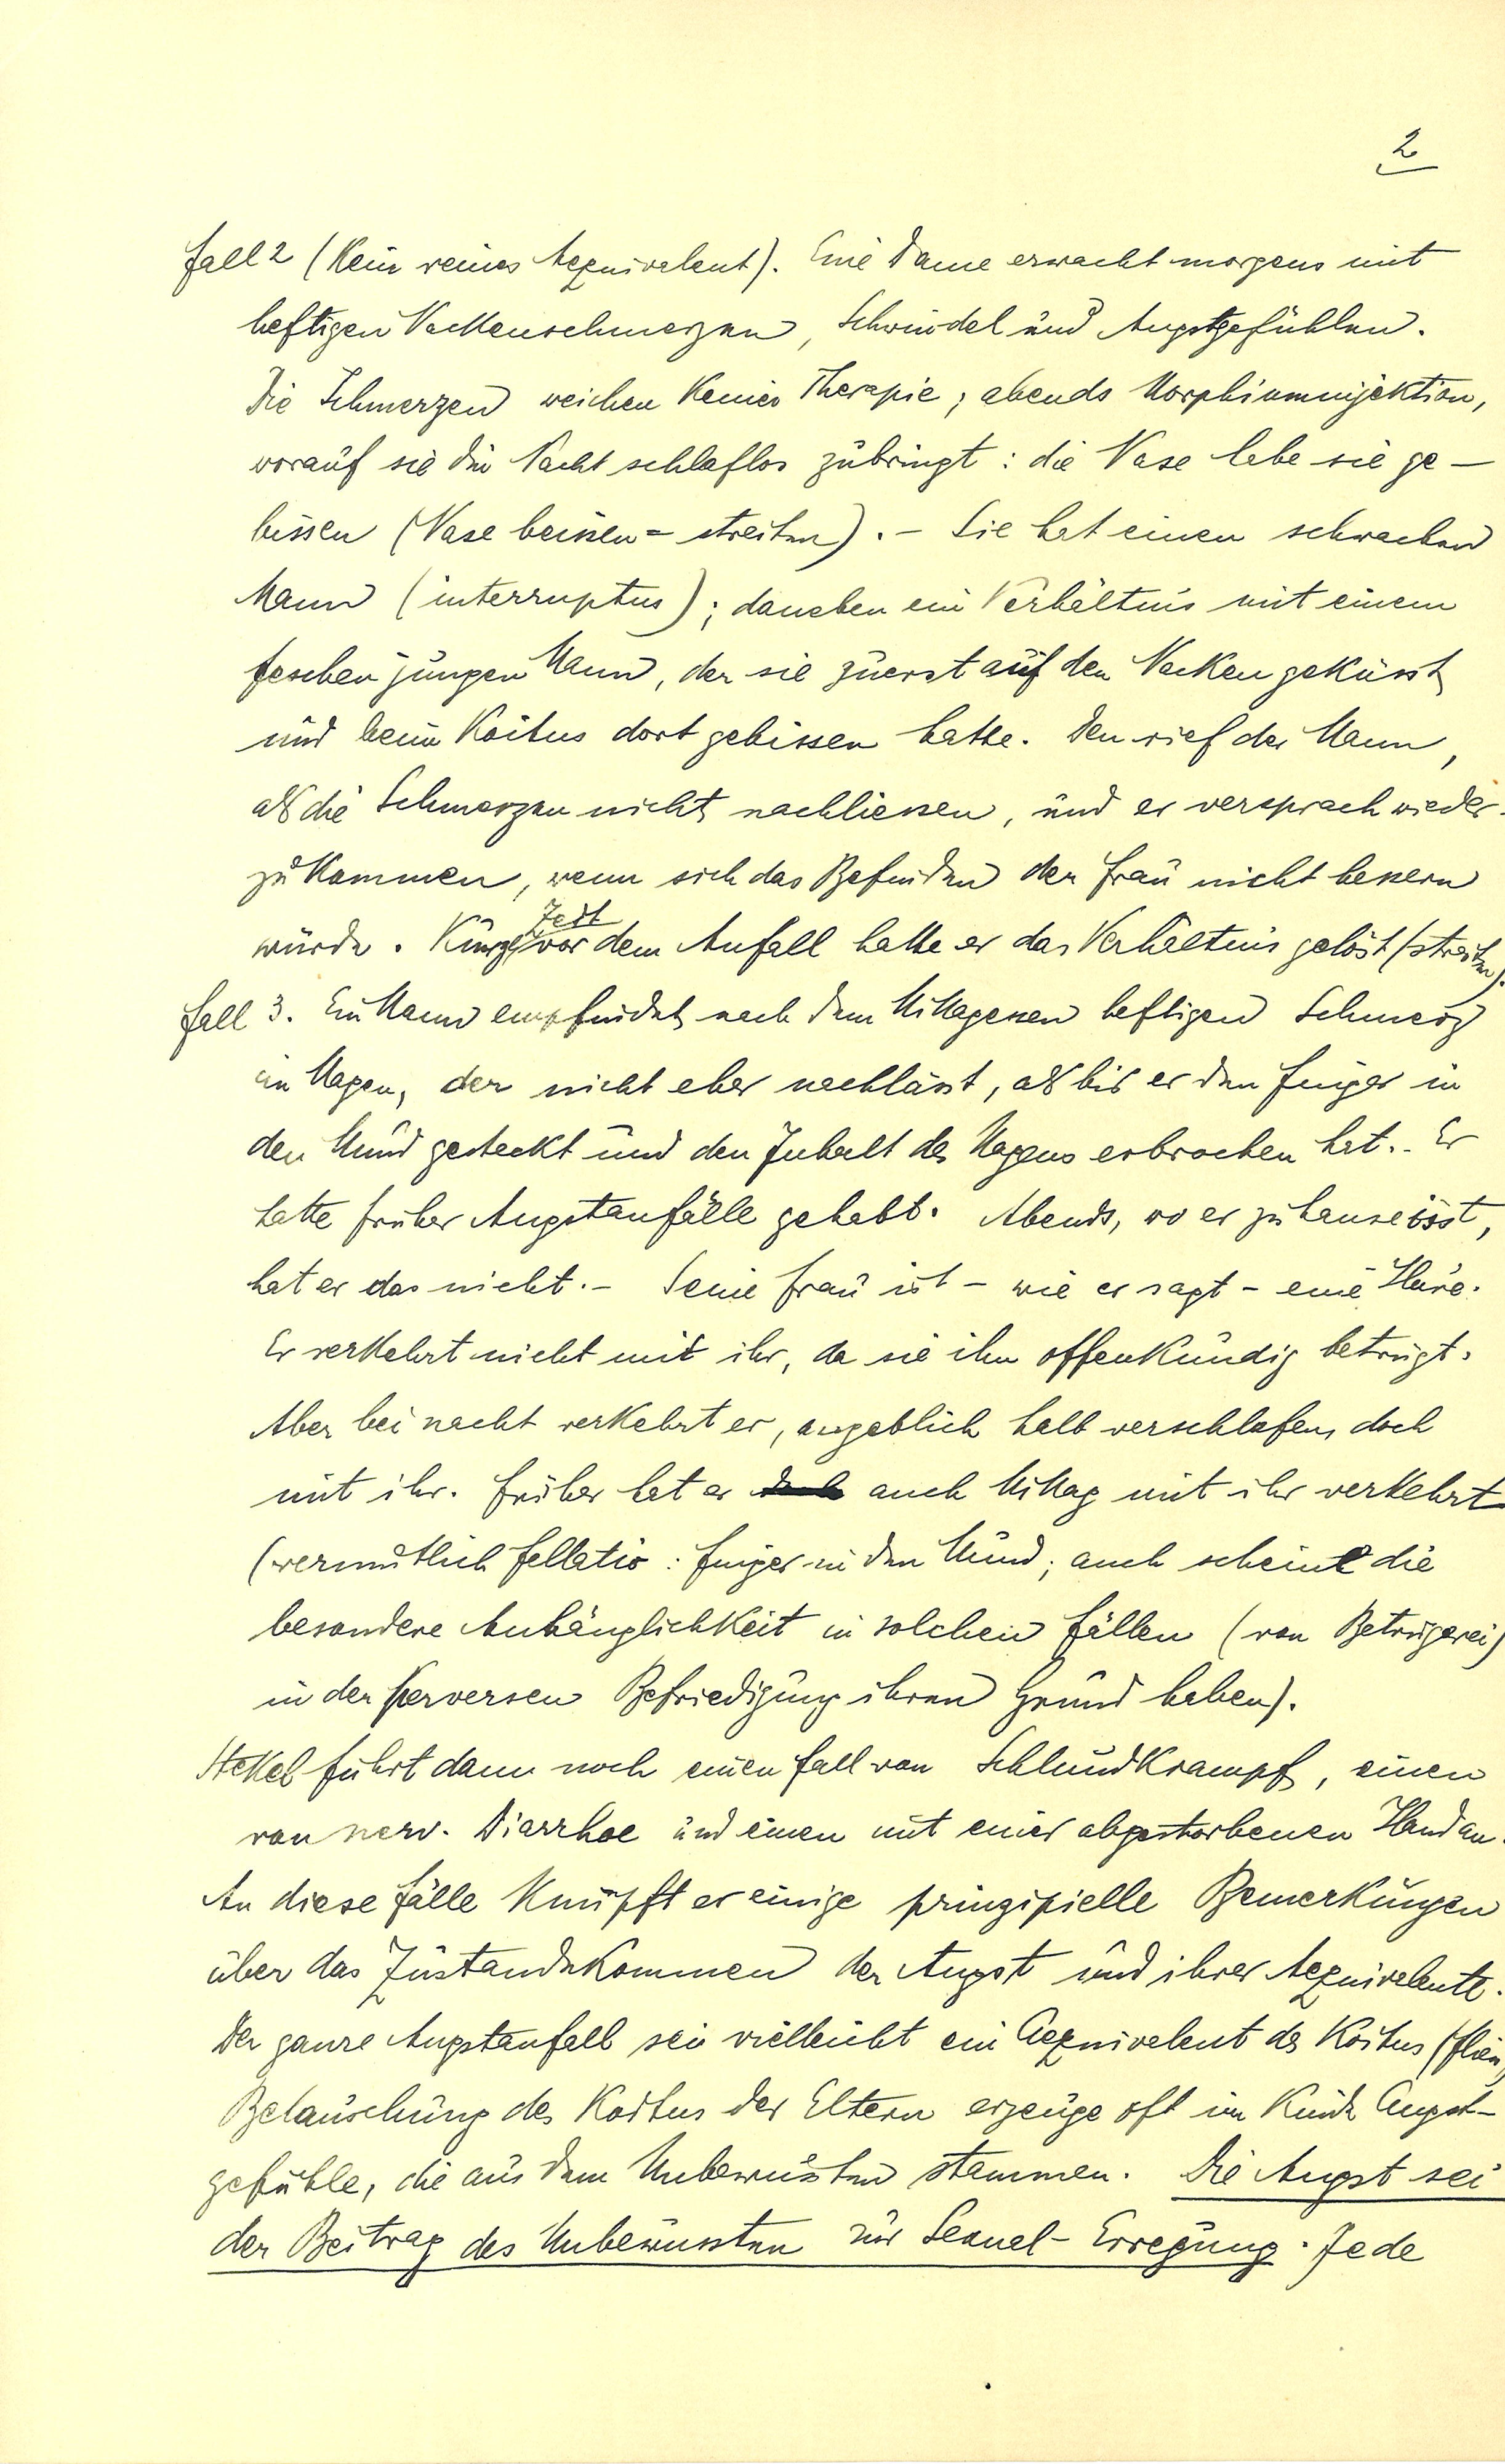 2
Fall 2 (Kein reines Aequivalent). Eine Dame erwacht morgens mit
heftigen Nackenschmerzen, Schwindel und Angstgefühlen.
Die Schmerzen weichen keiner Therapie; abends Morphiuminjektion,
worauf sie die Nacht schlaflos zubringt: die Nase habe sie ge-
bissen (Nase beissen = streiten). - Sie hat einen schwachen
Mann (interruptus); daneben ein Verhältnis mit einem
feschen jungen Mann, der sie zuerst auf den Nacken geküsst
und beim Koitus dort gebissen hatte. Den rief der Mann,
als die Schmerzen nicht nachliessen, und er versprach wieder-
zukommen, wenn sich das Befinden der Frau nicht bessern
würde. Kurze Zeit vor dem Anfall hatte er das Verhältnis gelöst (streiten).
Fall 3. Ein Mann empfindet nach dem Mittagessen heftigen Schmerz
im Magen, der nicht eher nachlässt, als bis er den Finger in
den Mund gesteckt und den Inhalt des Magens erbrochen hat. - Er
hatte früher Angstanfälle gehabt. Abends, wo er zuhause isst,
hat er das nicht. - Seine Frau ist - wie er sagt - eine Hure.
Er verkehrt nicht mit ihr, da sie ihn offenkundig betrügt.
Aber bei nacht verkehrt er, angeblich halb verschlafen, doch
mit ihr. Früher hat er auch Mittag mit ihr verkehrt
(vermutlich fellatio: Finger in den Mund; auch scheint die
besondere Anhänglichkeit in solchen Fällen (von Betrügerei)
in der perversen Befriedigung ihren Grund haben).
Stekel führt dann noch einen Fall von Schlundkrampf, einen
von nerv. Diarrhoe und einen mit einer abgestorbenen Hand an.
An diese Fälle knüpft er einige prinzipielle Bemerkungen
über das Zustandekommen der Angst und ihrer Aequivalente.
Der ganze Angstanfall sei vielleicht ein Aequivalent des Koitus
Belauschung des Koitus der Eltern erzeuge oft im Kinde Angst-
gefühle, die aus dem Unbewussten stammen. Die Angst sei
der Beitrag des Unbewussten zur Sexual-Erregung. Jede